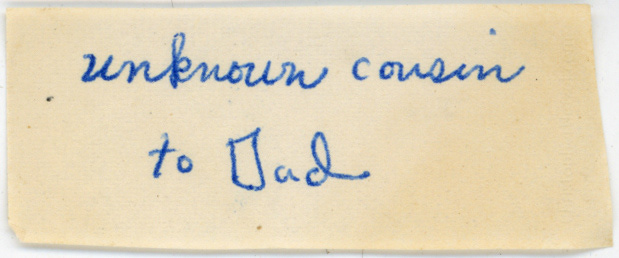 unknown cousin
to Dad